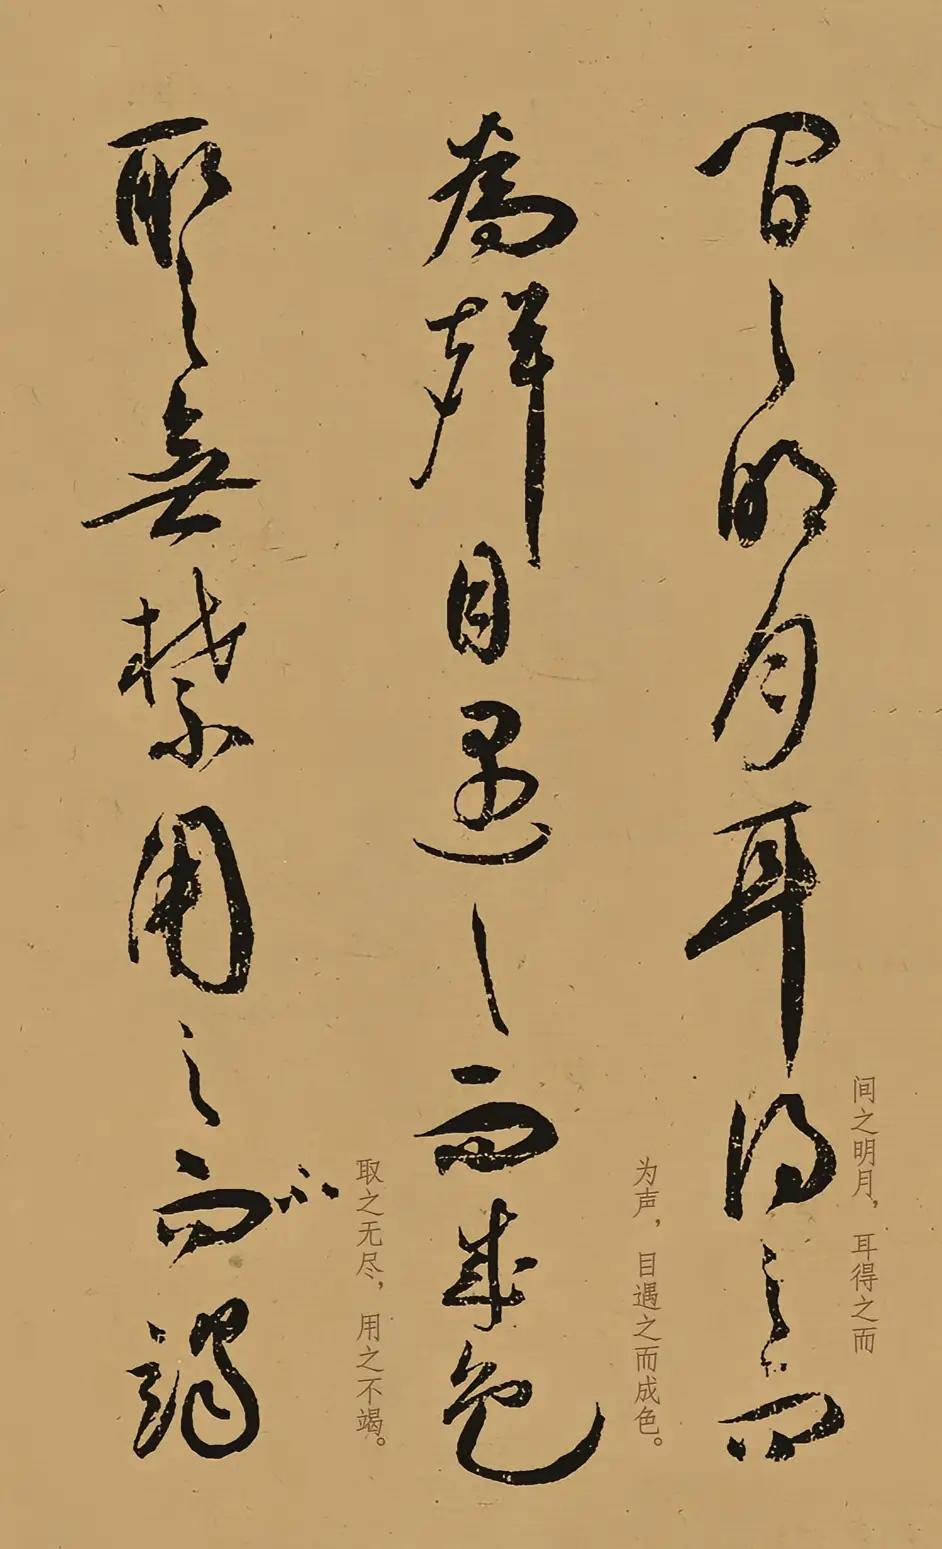 间之明月，耳得之而
間之明月耳得之而
为声，目遇之而成色。
為聲目遇之而成色
取之无尽，用之不竭。
取之無禁用之不竭